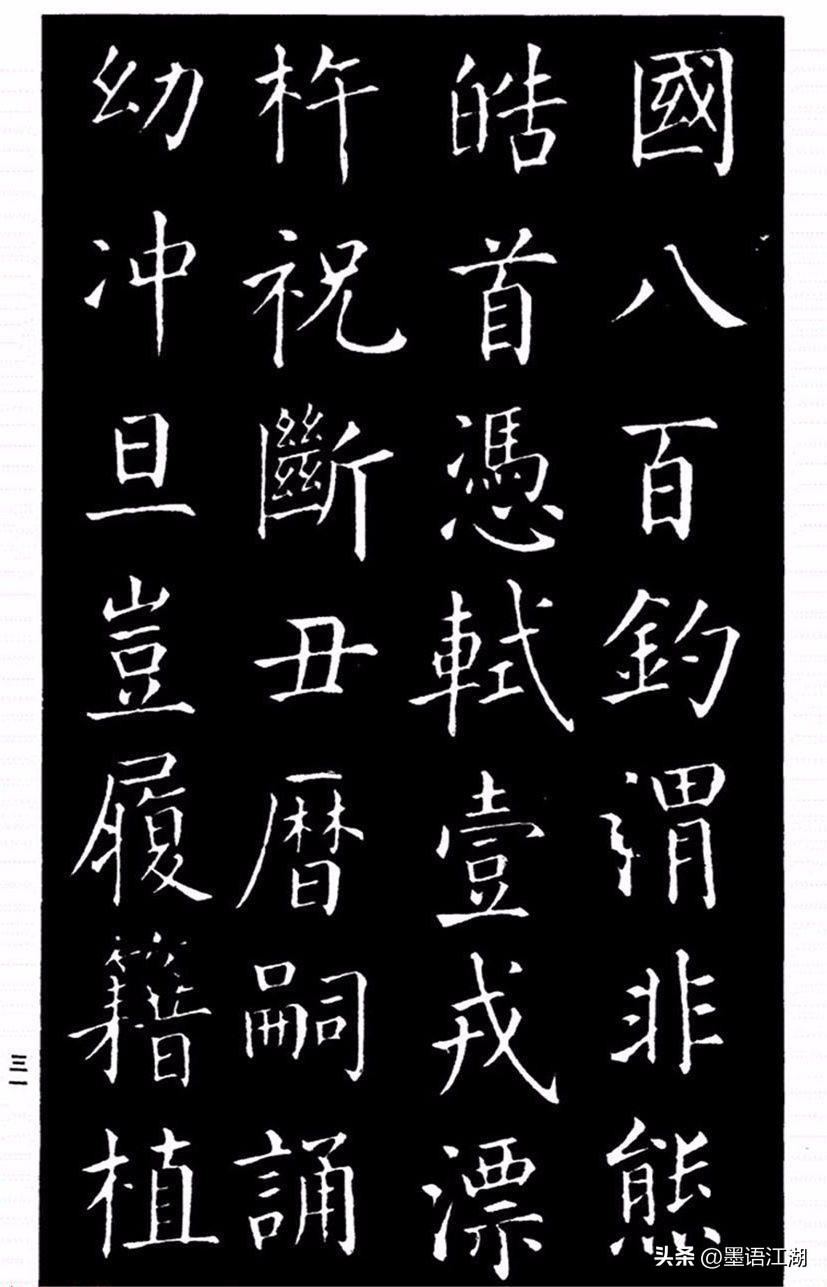 國八百釣渭非熊
皓首憑軾壹戎漂
杵祝斷丑暦嗣誦
幼冲旦豈履籍植
三一
头条 @墨语江湖